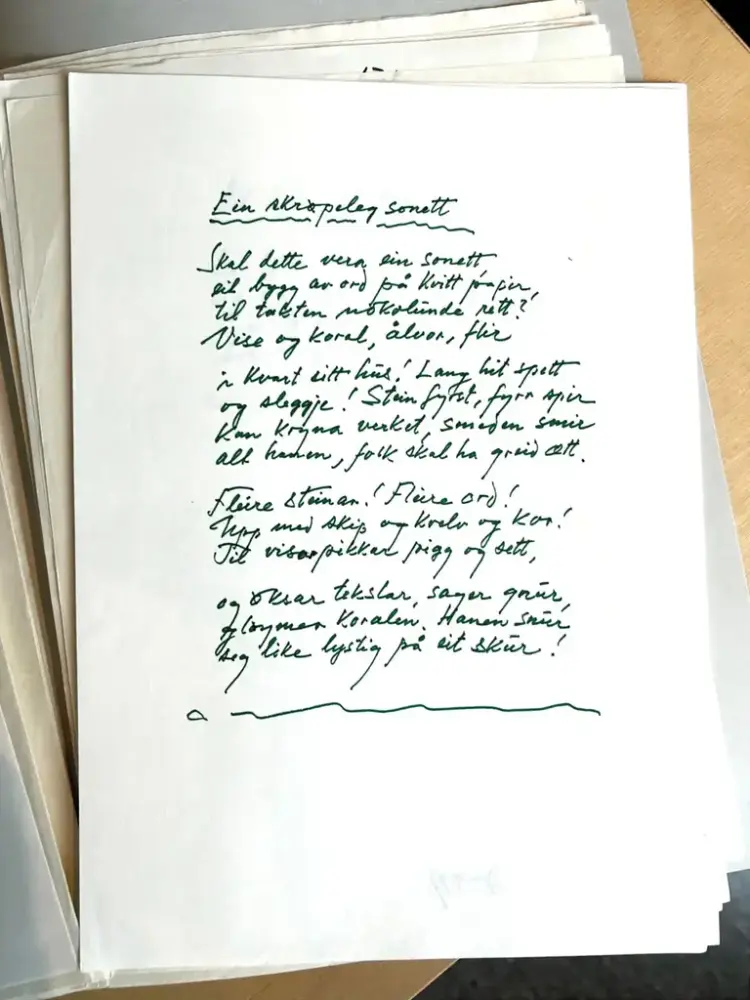 Ein skrøpeleg sonett
Skal dette vera ein sonett,
eit bygg av ord på kvitt papir,
til taksten nokolunde rett?
Vise og koral, ålvor, flir
i kvart sitt hus! Lang hit spett
og sleggje! Stein fyrst, fyrr spir
kan kryna verket, smeden smir
alt hanen, folk skal ha greid ætt.
Fleire steinar! Fleire ord!
Upp med skip og kvelv og kor!
Til visorpikkar pigg og sett,
og øksar tekslar, sager gnur,
gløymer koralen. Hanen snur
seg like lystig på eit skur!